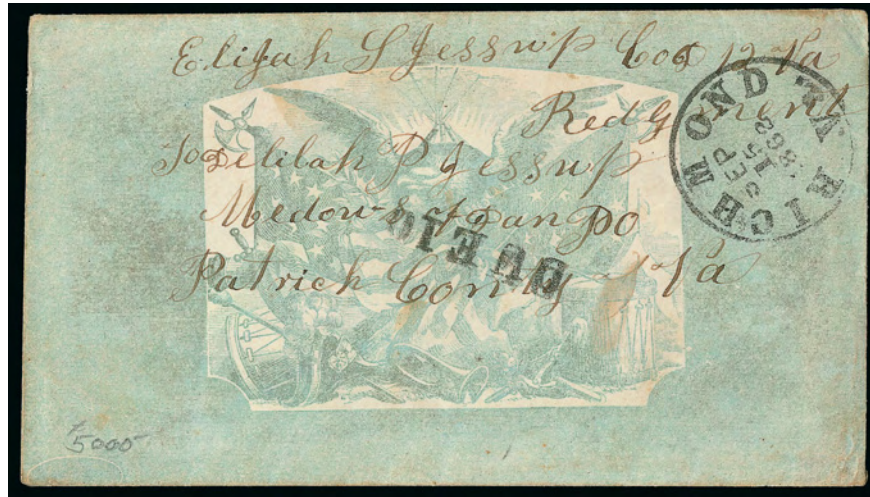 Elijah S Jessup Co D 12 Va
Redgment
To Delilah P Jessup
Medows of Dan PO
Patrich Conty Va
RICHMOND VA.
SEP
15
1862
DUE 10
5000